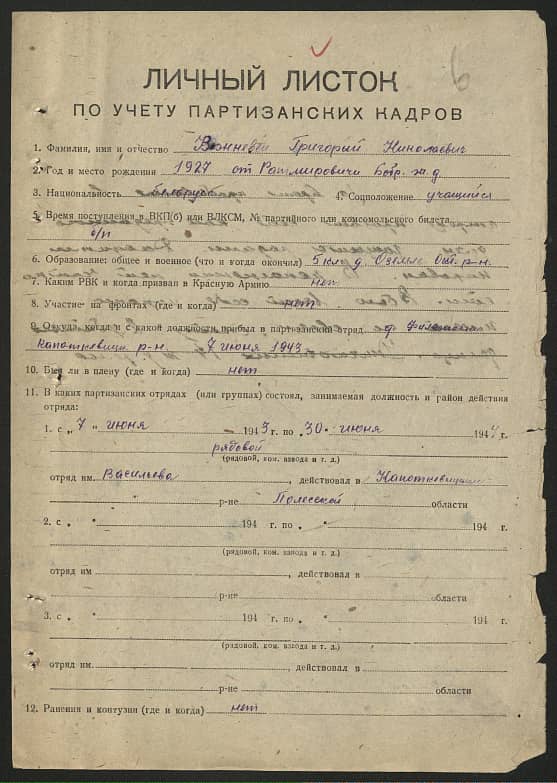 ЛИЧНЫЙ ЛИСТОК
ПО УЧЕТУ ПАРТИЗАНСКИХ КАДРОВ
1. Фамилия, имя и отчество Григорий Николаевич
2. Год и место рождения 1927 ст Ратмировичи Бобр. ж.д.
3. Национальность белорус 4. Соцположение учащийся
5. Время поступления в ВКП(б) или ВЛКСМ, № партийного или комсомольского билета
б/п
6. Образование: общее и военное (что и когда окончил) 5 кл. р-н.
7. Каким РВК и когда призван в Красную Армию нет
8. Участие на фронтах (где и когда) нет
9. Откуда, когда и с какой должности прибыл в партизанский отряд
р-н. 7 июня 1943
10. Был ли в плену (где и когда) нет
11. В каких партизанских отрядах (или группах) состоял, занимаемая должность и район действия
отряда:
1. с „7 " июня 1943 г. по „30" июня 1944 г.
рядовой
(рядовой, ком. взвода и т. д.)
отряд им. Васильева, действовал в
р-не Полесской области
2. с „ " 194 г. по „ " 194 г.
(рядовой, ком. взвода и т. д.)
отряд им, действовал в
р-не области
3. с „ " 194 г. по „ " 194 г.
(рядовой, ком. взвода и т. д.)
отряд им., действовал в
р-не области
12. Ранения и контузия (где и когда) нет